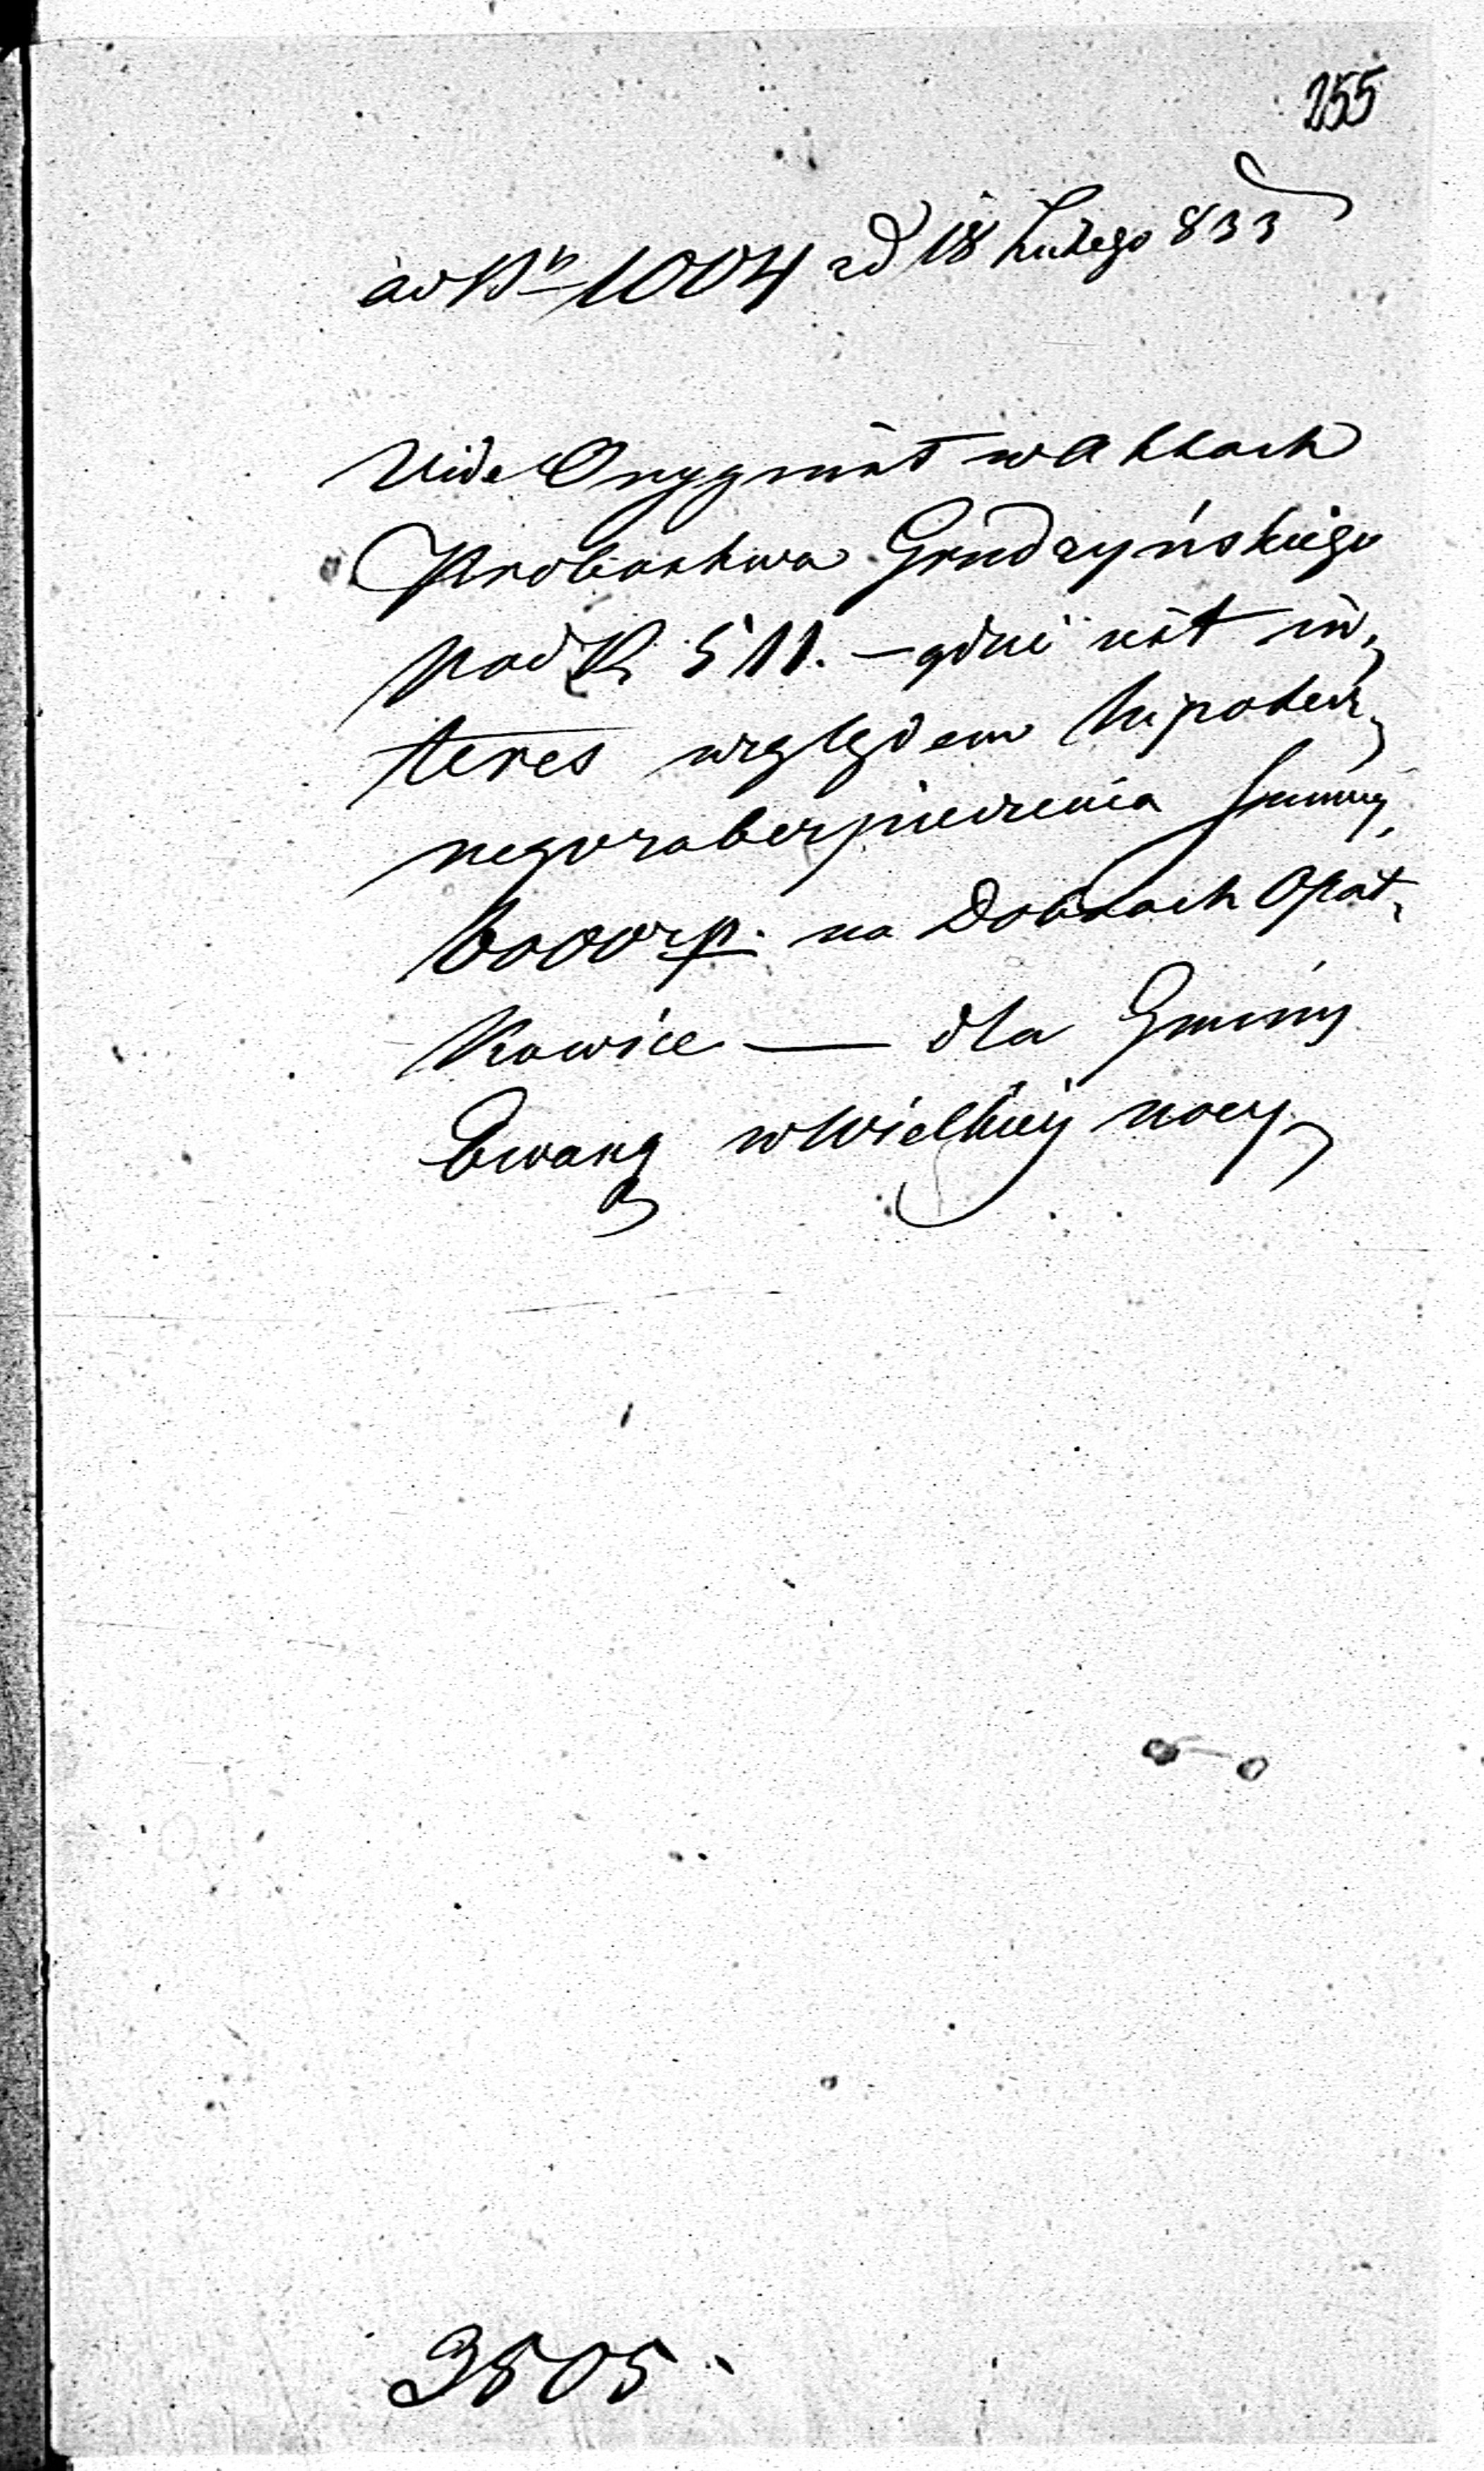 255
ad N 1004 ad 18 Lutego 833
Vide Oryginał w Aktach
Probostwa Grudzyńskiego
pod N 511. — gdzie iest in,
teres względem hipotecz,
nego zabezpieczenia Summy
6000 zp. na Dobrach Opat,
kowice — dla Gminy
Ewang w Wielkiey nocy
3505.